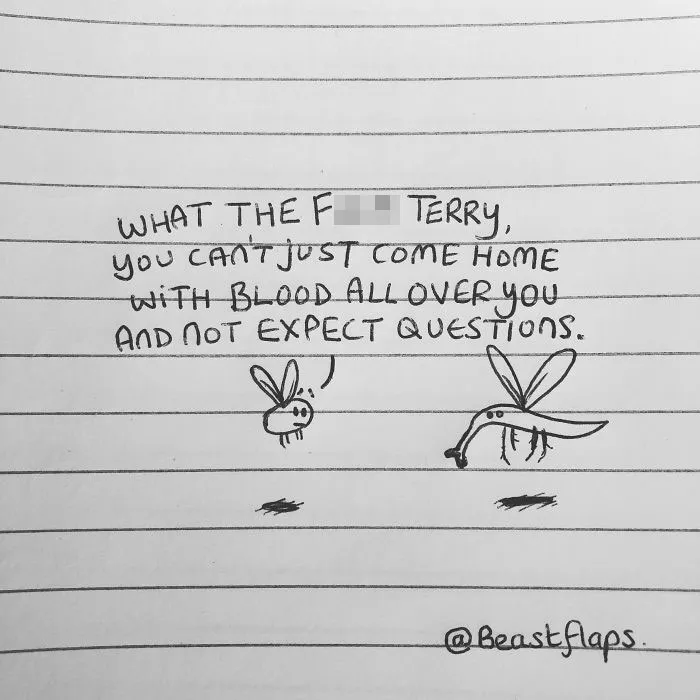 WHAT THE F TERRY,
YOU CAN'T JUST COME HOME
WITH BLOOD ALL OVER YOU
AND NOT EXPECT QUESTIONS.
@Beastflaps.